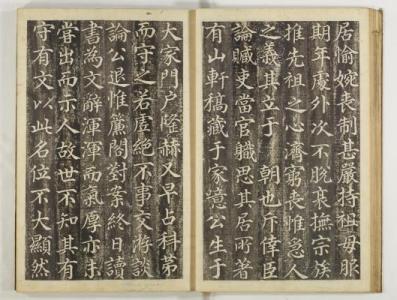 居愉婉喪制甚嚴持祖毋服
期年處外次不脫衰撫宗族
推先祖之心濟窮喪惟恐人
之義其立于朝也斥倖臣
論贓吏當官職思其居所著
有山軒稿藏于家噫公生于
大家門户隆赫又早占科苐
而守之若虛絶不事交游談
論公退惟簾閤對案終日讀
書為文辭渾渾而氣厚亦未
嘗出而示人故世不知其有
守有文以此名位不大顯然